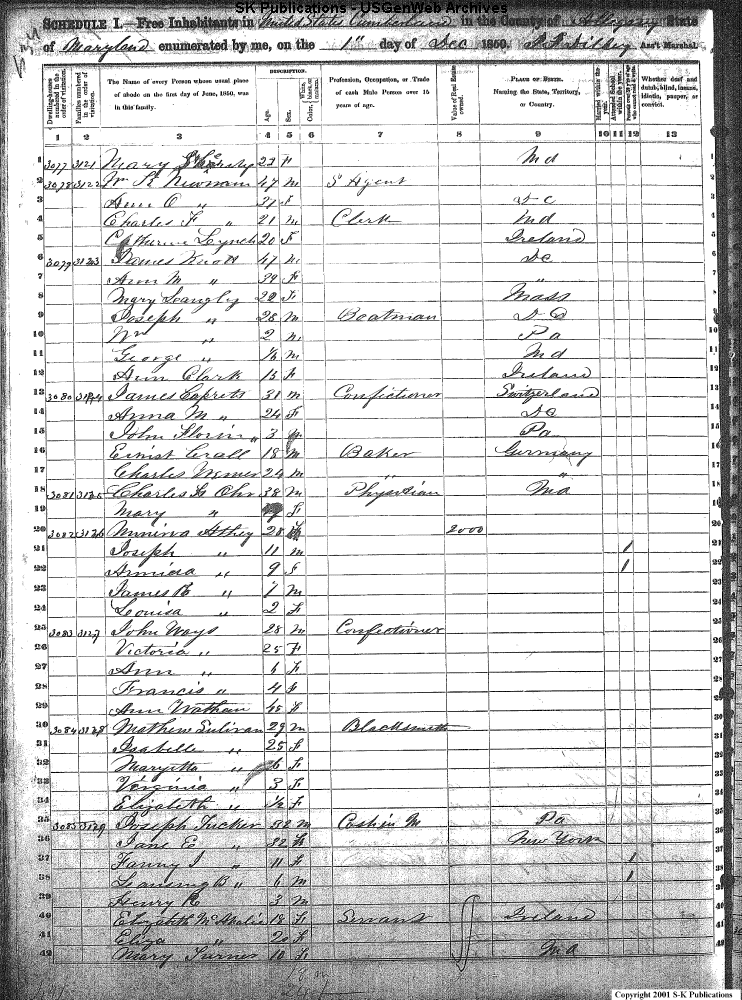 SK Publications - USGenWeb Archives
SCHEDULE I.—Free Inhabitants in United States Cumberland in the County of Allegany State
of Maryland enumerated by me, on the 1st day of Dec 1850. Ass't Marshal.
Dwelling-houses numbered in the order of visitation.
Families numbered in the order of visitation.
The Name of every Person whose usual place of abode on the first day of June, 1850, was in this family.
DESCRIPTION.
Age.
Sex.
Color, White, black, or mulatto.
Profession, Occupation, or Trade of each Male Person over 15 years of age.
Value of Real Estate owned.
PLACE OF BIRTH. Naming the State, Territory, or Country.
Married within the year.
Attended School within the year.
Whether deaf and dumb, blind, insane, idiotic, pauper, or convict.
1 2 3 4 5 6 7 8 9 10 11 12 13
1 3077 3121 Mary 23 F Md
2 3078 3122 Wm R Newman 47 M S Agent
3 Ann O " F D C
4 Charles F " 21 M Clerk Md
5 Catherine Lynch 20 F Ireland
6 3079 3123 James Knott 47 M D C
7 Ann M " 39 F "
8 Mary Langly 22 F Mass
9 Joseph " 28 M Boatman D C
10 Wm " 2 M Pa
11 George " M Md
12 Ann Clark 15 F Ireland
13 3080 3124 James 31 M Confictioner Switzerland
14 Anna M " 24 F D C
15 John " 3 Pa
16 Ernist 18 M Baker Germany
17 Charles 24 M " "
18 3081 3125 Charles H Ohr 38 M Physician Md
19 Mary " F
20 3082 3126 Minerva Athey 28 F 2000
21 Joseph " 11 M 1
22 Armida " 9 F 1
23 James R " 7 M
24 Louisa " 2 F
25 3083 3127 John Ways 28 M Confictioner
26 Victoria " 25 F
27 Ann " 6 F
28 Francis " 4 F
29 Ann Wathan 45 F
30 3084 3128 Mathew Sulivan 29 M Blacksmith
31 Isabelle " 25 F
32 Maryetta " 6 F
33 Virginia " 3 F
34 Elizabeth " F
35 3085 3129 Joseph Tucker 52 M Pa
36 Jane E " 32 F New York
37 Fanny J " 11 F 1
38 Lansing B " 6 M 1
39 Henry 3 M
40 Elizabeth 18 F Servant Ireland
41 Eliza " 20 F
42 Mary Turner 10 F Md
Copyright 2001 S-K Publications